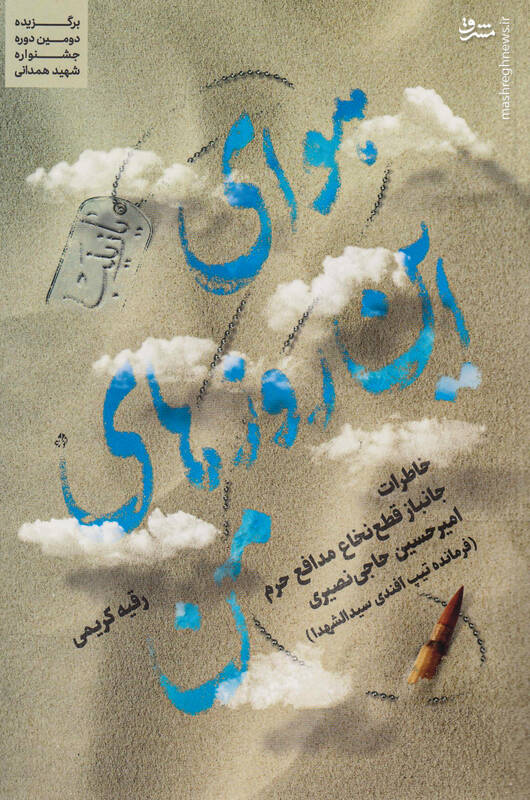 برگزیده
دومین دوره
جشنواره
شهید همدانی
مشرق
mashreghnews.ir
هوای
این روزهای
من
خاطرات
جانباز قطع نخاع مدافع حرم
امیرحسین حاجی نصیری
(فرمانده تیپ آفندی سیدالشهدا)
رقیه کریمی